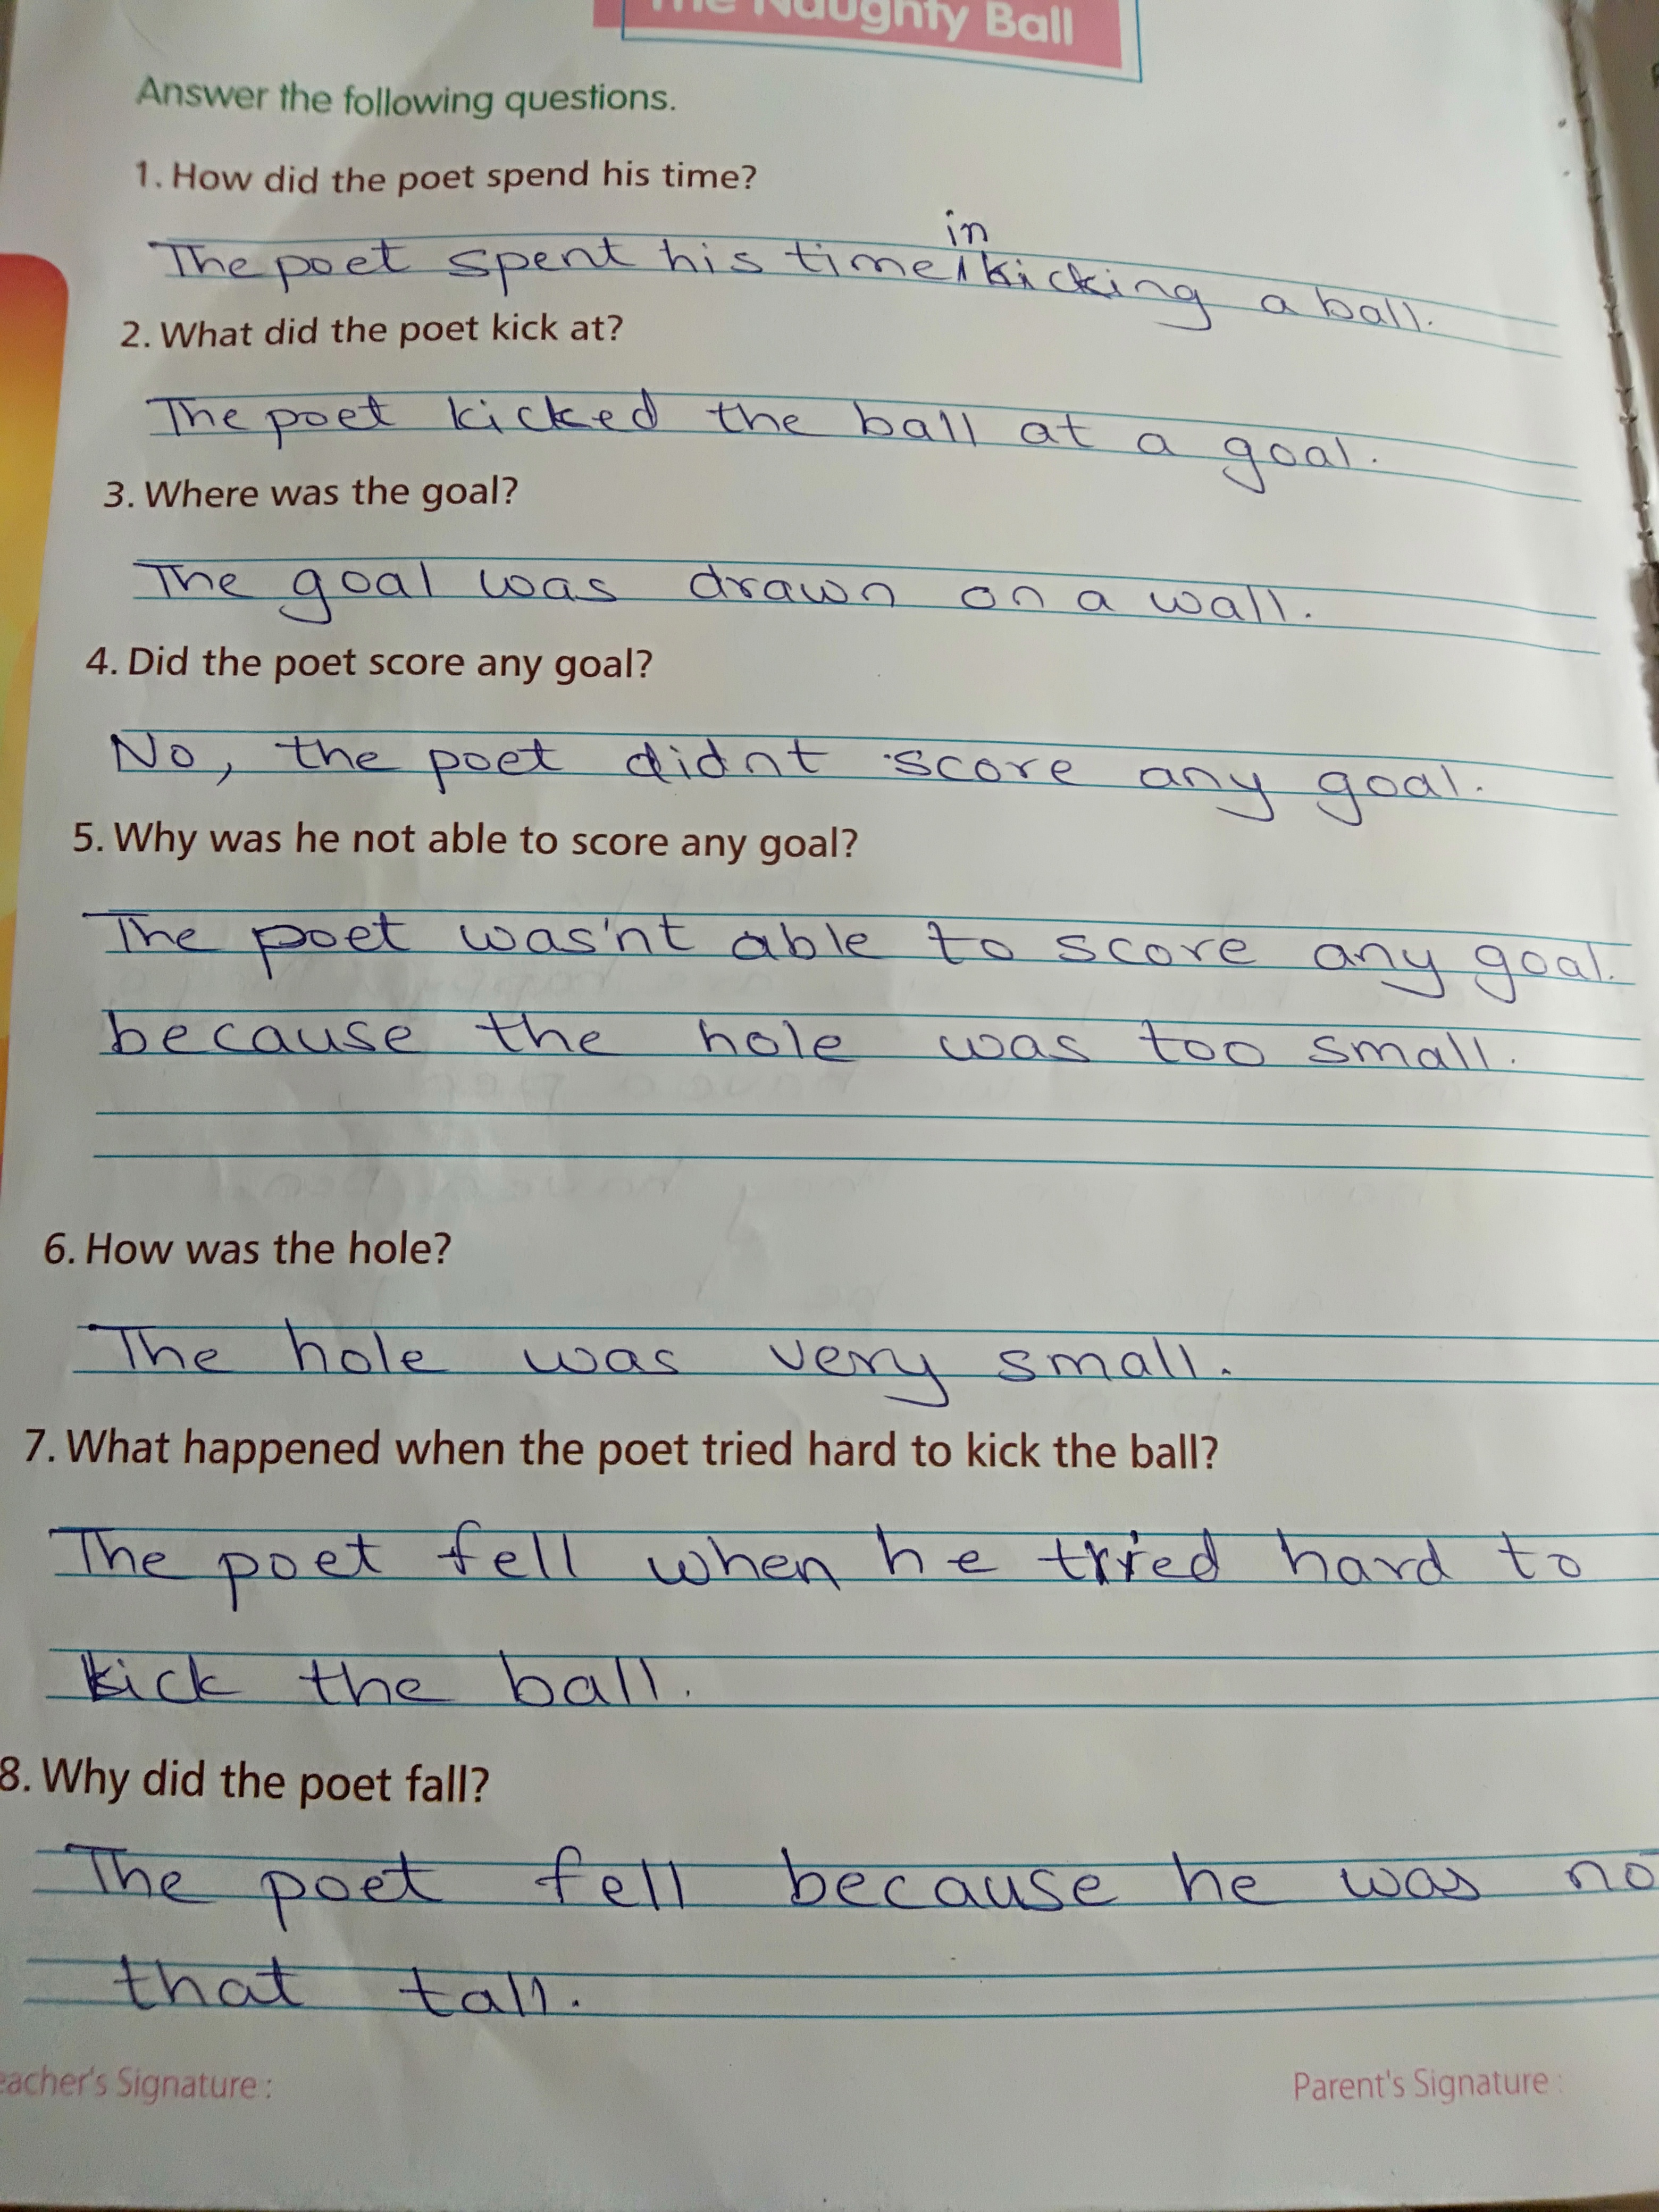 The Naughty Ball
Answer the following questions.
1. How did the poet spend his time?
in
The poet spent his time kicking a ball.
2. What did the poet kick at?
The poet kicked the ball at a goal.
3. Where was the goal?
The goal was drawn on a wall.
4. Did the poet score any goal?
No, the poet didnt score any goal.
5. Why was he not able to score any goal?
The poet was'nt able to score any goal.
because the hole was too small.
6. How was the hole?
The hole was very small.
7. What happened when the poet tried hard to kick the ball?
The poet fell when he tried hard to
kick the ball.
8. Why did the poet fall?
The poet fell because he was no
that tall.
eacher's Signature :
Parent's Signature :